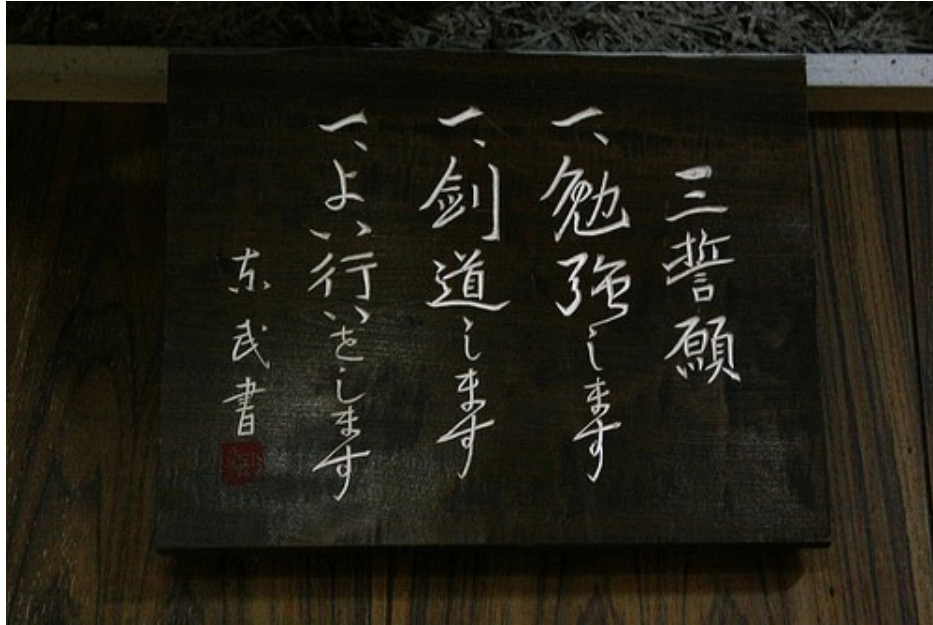 三誓願
一、勉強します
一、剣道します
一、よい行いをします
東武書